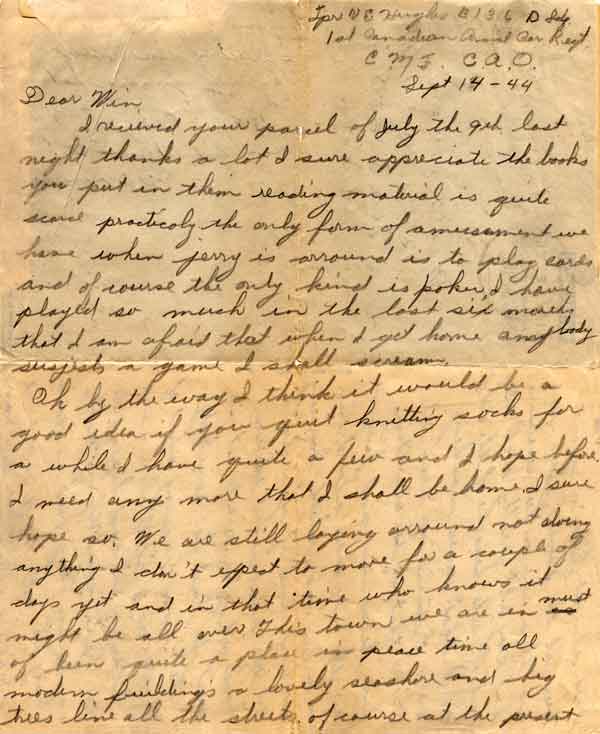 Tpr V E Hughes B136 D Sqd.
1st Canadian Arm'd Car Regt.
C M F. C A.O.
Sept 14-44
Dear Win
I received your parcel of July the 9th last
night thanks a lot I sure appreciate the books
you put in them reading material is quite
scarce practicaly the only form of amusement we
have when jerry is arround is to play cards
and of course the only kind is poker, I have
played so much in the last six months
that I am afraid that when I get home anybody
sugjests a game I shall scream.
Oh by the way I think it would be a
good idea if you quit knitting socks for
a while I have quite a few and I hope before
I need any more that I shall be home. I sure
hope so. We are still laying arround not doing
anything I don't expect to move for a couple of
days yet and in that time who knows it
might be all over. This town we are in must
of been quite a place in peace time all
modern buildings a lovely seashore and big
trees line all the streets. of course at the present